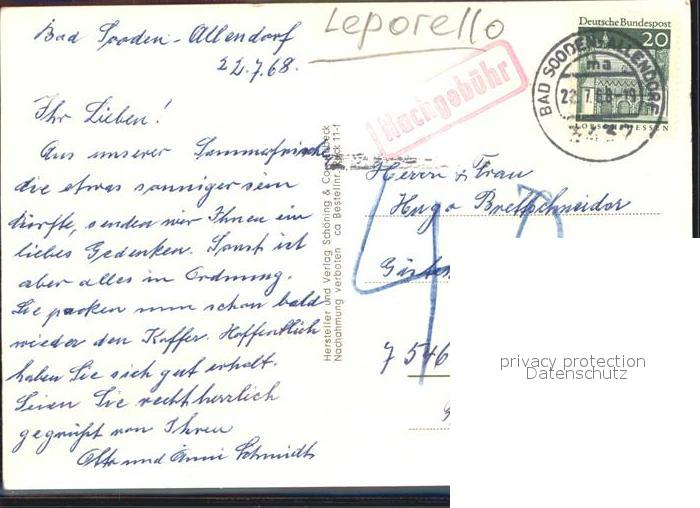 Leporello
Bad Sooden-Allendorf
22.7.68.
Deutsche Bundespost
20
LORSCH HESSEN
BAD SOODEN-ALLENDORF
ma
22.7.68-19
Nachgebühr
Ihr Lieben!
Aus unserer Sommerfrische
die etwas sonniger sein
dürfte, senden wir Ihnen ein
liebes Gedenken. Sonst ist
aber alles in Ordnung.
Sie packen nun schon bald
wieder den Koffer. Hoffentlich
haben Sie sich gut erholt.
Seien Sie recht herzlich
gegrüßt von Ihren
Otto und Änni Schmidt
Hersteller und Verlag Schöning & Co
Nachahmung verboten ca Bestellnr.
Herrn & Frau
Hugo Bretschneider
7 546
privacy protection
Datenschutz